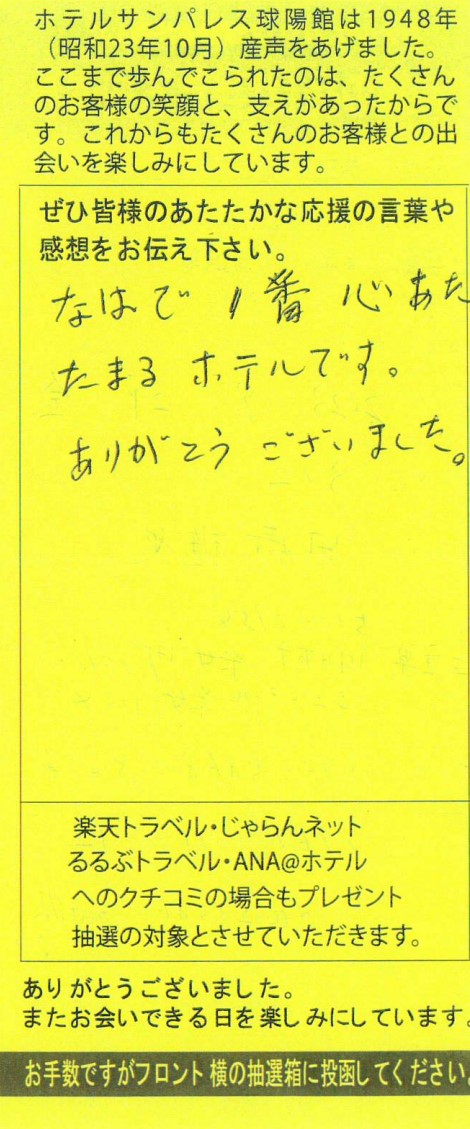 ホテルサンパレス球陽館は1948年
（昭和23年10月）産声をあげました。
ここまで歩んでこられたのは、たくさん
のお客様の笑顔と、支えがあったからで
す。これからもたくさんのお客様との出
会いを楽しみにしています。
ぜひ皆様のあたたかな応援の言葉や
感想をお伝え下さい。
なはで 1番 心 あた
たまる ホテルです。
ありがとう ございました。
楽天トラベル・じゃらんネット
るるぶトラベル・ANA@ホテル
へのクチコミの場合もプレゼント
抽選の対象とさせていただきます。
ありがとうございました。
またお会いできる日を楽しみにしています。
お手数ですがフロント横の抽選箱に投函してください。